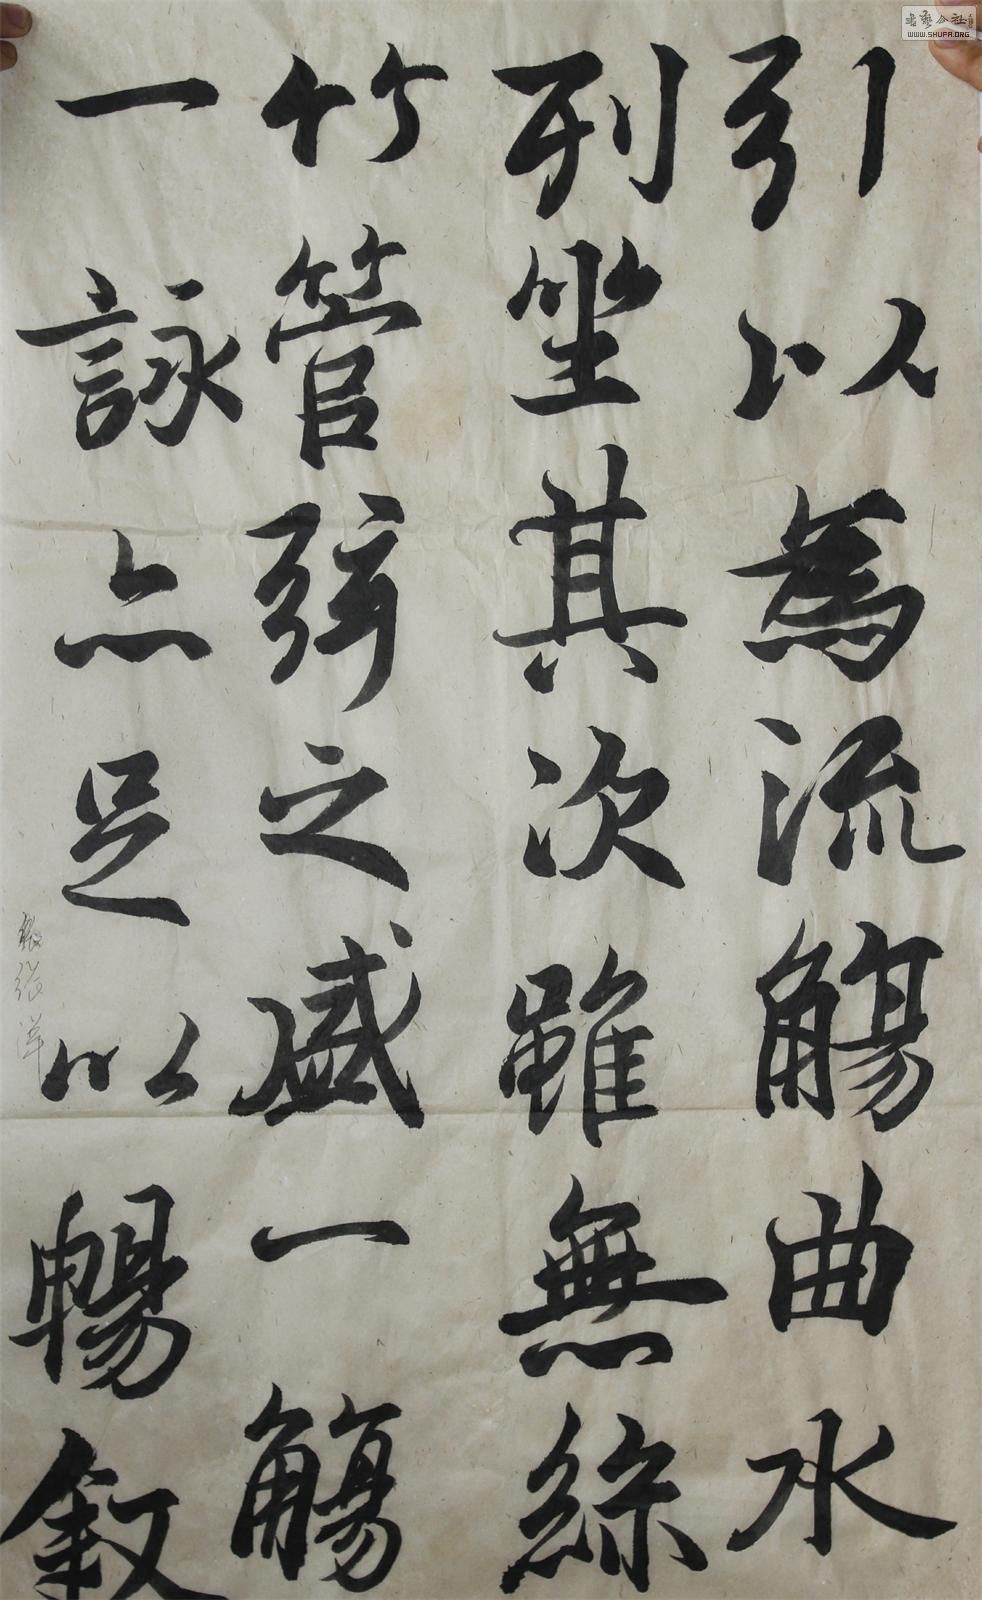 引以為流觴曲水
列坐其次雖無絲
竹管弦之盛一觴
一詠亦足以暢敘
书艺公社
WWW.SHUFA.ORG